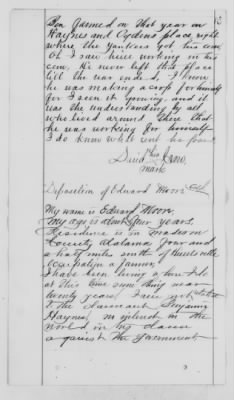 farmed on that year on
Haynes and place right
where the Yankees got this corn
Oh I saw him working in his
corn. He never left that place
till the war ended. I know
he was making a crop for himself
for I seen it growing, and it
was the understanding by all
who lived around there that
he was working for himself
I do know what rent he paid
his
mark
Deposition of Edward Moore
My name is Edward Moore.
My age is about four years.
Residence is in Madison
County Alabama four and
a half miles south of Huntsville
Occupation a farmer,
I have been living where I do
at this time some thing near
twenty years. I am not
to the claimant Benjamin
Haynes, no interest in the
world in his claim
against the Government